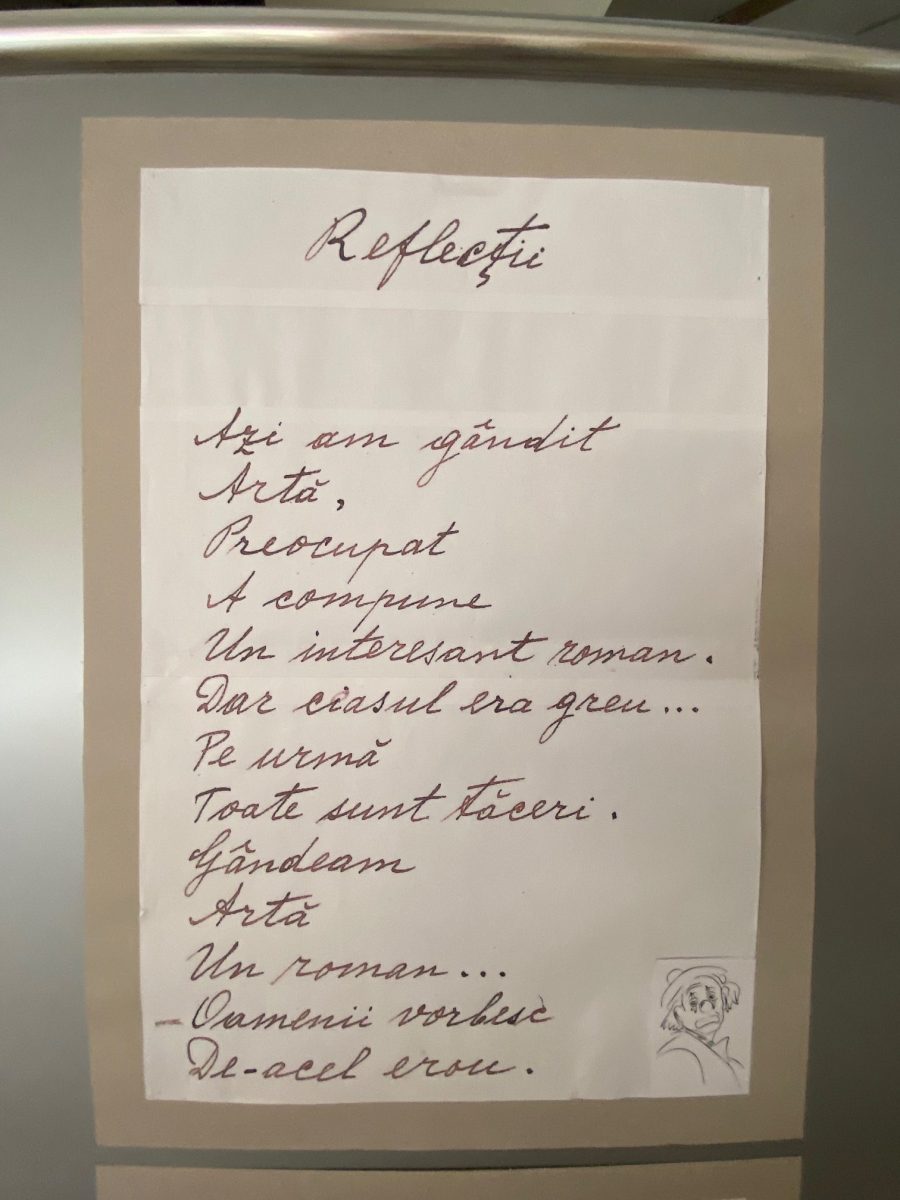 Reflecţii
Azi am gândit
Artă,
Preocupat
A compune
Un interesant roman.
Dar ciasul era greu...
Pe urmă
Toate sunt tăceri.
Gândeam
Artă
Un roman...
- Oamenii vorbesc
De-acel erou.